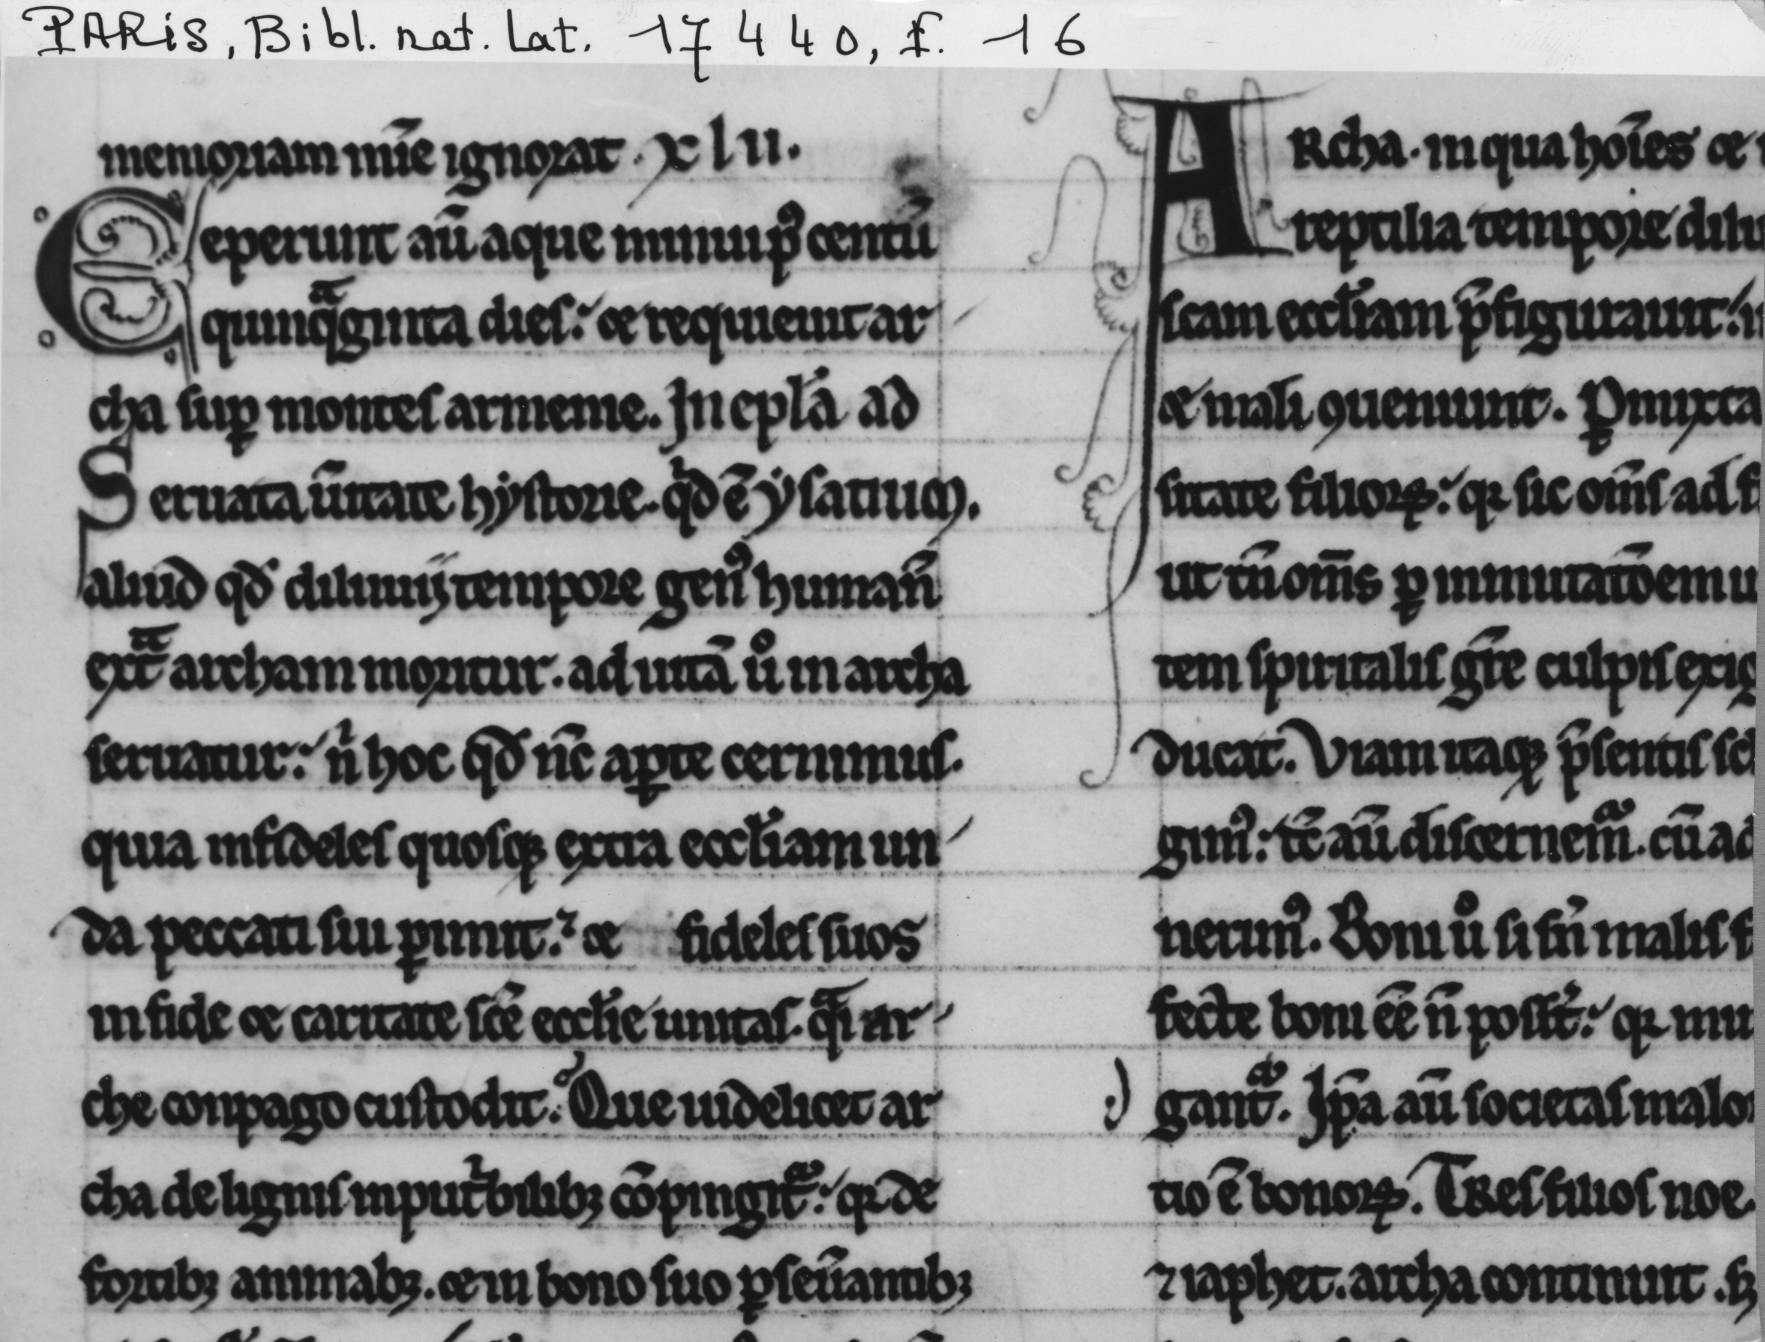 PARIS, Bibl. nat. Lat. 17 440, f. 16
memoriam mīe ignorat. xlii.
Ceperunt aū aque minui pꝰ centū
quinqᵃginta dies: et requieuit ar
cha sup̱ montes armenie. In ep̄la ad
Seruata ūitate hystorie. qͥd ē
aliud qd̄ diluuij tempore genꝰ humanū
extᵃ archam moritur. ad uitā ů in archa
seruatur: n̄ hoc qd̄ nc̄ ap̱te cernimus.
quia infideles quosqꝫ extra eccl̄iam un
da peccati sui p̱imit: et fideles suos
in fide et caritate sc̄e eccl̄ie unitas. qᵃi ar
che conpago custodit. Que uidelicet ar
cha de lignis inputͥbilibꝫ cōpingit᷑: qꝛ de
fortibꝫ animabꝫ. et in bono suo p̱seūantibꝫ
ARcha. in qua hoīes et
reptilia tempore dilu
scam eccl̄iam p̄figurauit:
et mali ꝯueniunt. P̱mixta
sitate filioꝝ: qꝛ sic om̄s ad
ut tn̄ om̄s p̱ inmutatōem u
tem spiritalis gr̄e culpis exig
ducat. Viam itaqꝫ p̄sentis
gimꝰ: tc̄ aū discernemᷣ. cū ad
nerimꝰ. Boni ů si sn̄ malis
fecte boni eē n̄ posst̄: qꝛ mu
gant᷑. Ip̄a aū societas malo
tio ē bonoꝝ. Tres filios noe
⁊ iaphet. archa continuit.